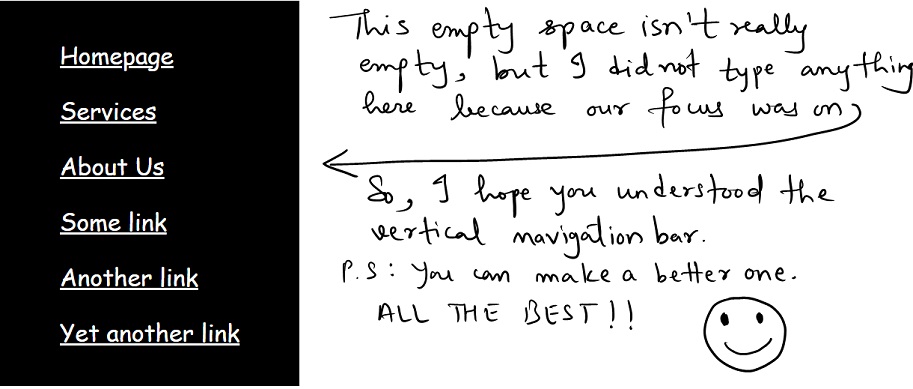 Homepage
Services
About Us
Some link
Another link
Yet another link
This empty space isn't really
empty, but I did not type anything
here because our focus was on
So, I hope you understood the
vertical navigation bar.
P.S: You can make a better one.
ALL THE BEST!!